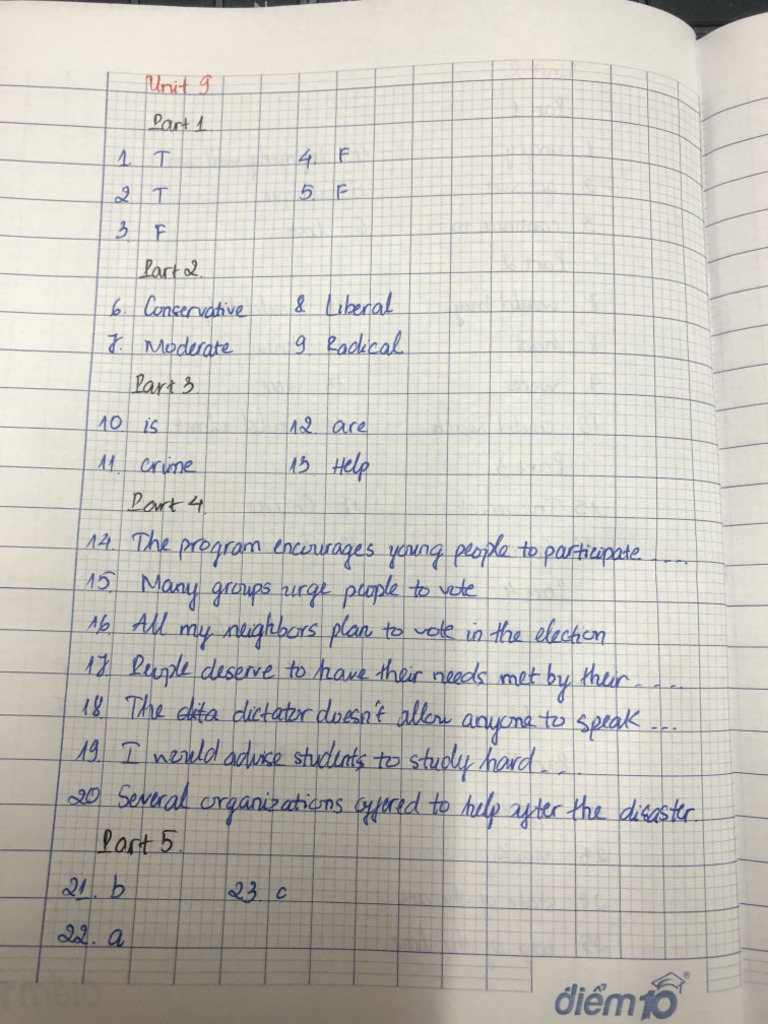 Unit 9
Part 1
1. T 4 F
2 T 5. F
3 F
Part 2.
6. Conservative 8. Liberal
7. Moderate 9. Radical
Part 3
10. is 12 are
11. crime 13 Help
Part 4
14. The program encourages young people to participate ....
15. Many groups urge people to vote
16. All my neighbors plan to vote in the election
17. People deserve to have their needs met by their ....
18. The dictator doesn't allow anyone to speak ...
19. I would advise students to study hard ....
20 Several organizations offered to help after the disaster.
Part 5.
21. b 23. c
22. a
điểm10